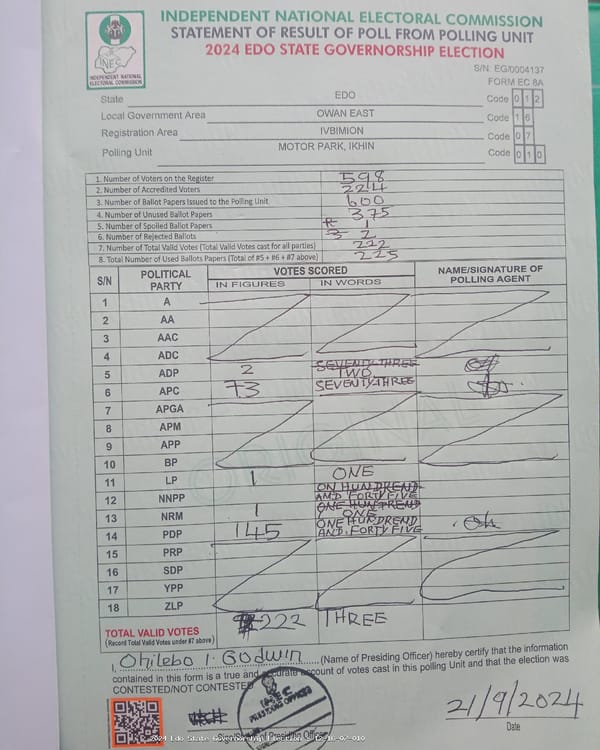 INDEPENDENT NATIONAL ELECTORAL COMMISSION
STATEMENT OF RESULT OF POLL FROM POLLING UNIT
2024 EDO STATE GOVERNORSHIP ELECTION
INEC
INDEPENDENT NATIONAL ELECTORAL COMMISSION
S/N: EG/0004137
FORM EC 8A
State EDO Code 012
Local Government Area OWAN EAST Code 16
Registration Area IVBIMION Code 07
Polling Unit MOTOR PARK, IKHIN Code 010
1. Number of Voters on the Register 598
2. Number of Accredited Voters 224
3. Number of Ballot Papers Issued to the Polling Unit 600
4. Number of Unused Ballot Papers 375
5. Number of Spoiled Ballot Papers 1
6. Number of Rejected Ballots 3 2
7. Number of Total Valid Votes (Total Valid Votes cast for all parties) 222
8. Total Number of Used Ballots Papers (Total of #5 + #6 + #7 above) 225
S/N POLITICAL PARTY VOTES SCORED NAME/SIGNATURE OF POLLING AGENT
IN FIGURES IN WORDS
1 A
2 AA
3 AAC
4 ADC
5 ADP 2 SEVENTY THREE TWO
6 APC 73 SEVENTY THREE
7 APGA
8 APM
9 APP
10 BP
11 LP 1 ONE
12 NNPP ON HUNDREND AND FORTY FIVE
13 NRM 1 ONE HUNDREND ONE
14 PDP 145 ONE HUNDREND AND FORTY FIVE
15 PRP
16 SDP
17 YPP
18 ZLP
ORIGINAL
TOTAL VALID VOTES 222 THREE
(Record Total Valid Votes under #7 above)
I, Ohilebo I. Godwin (Name of Presiding Officer) hereby certify that the information
contained in this form is a true and accurate account of votes cast in this polling Unit and that the election was
CONTESTED/NOT CONTESTED
INEC
PRESIDING OFFICER
21/9/2024
Date